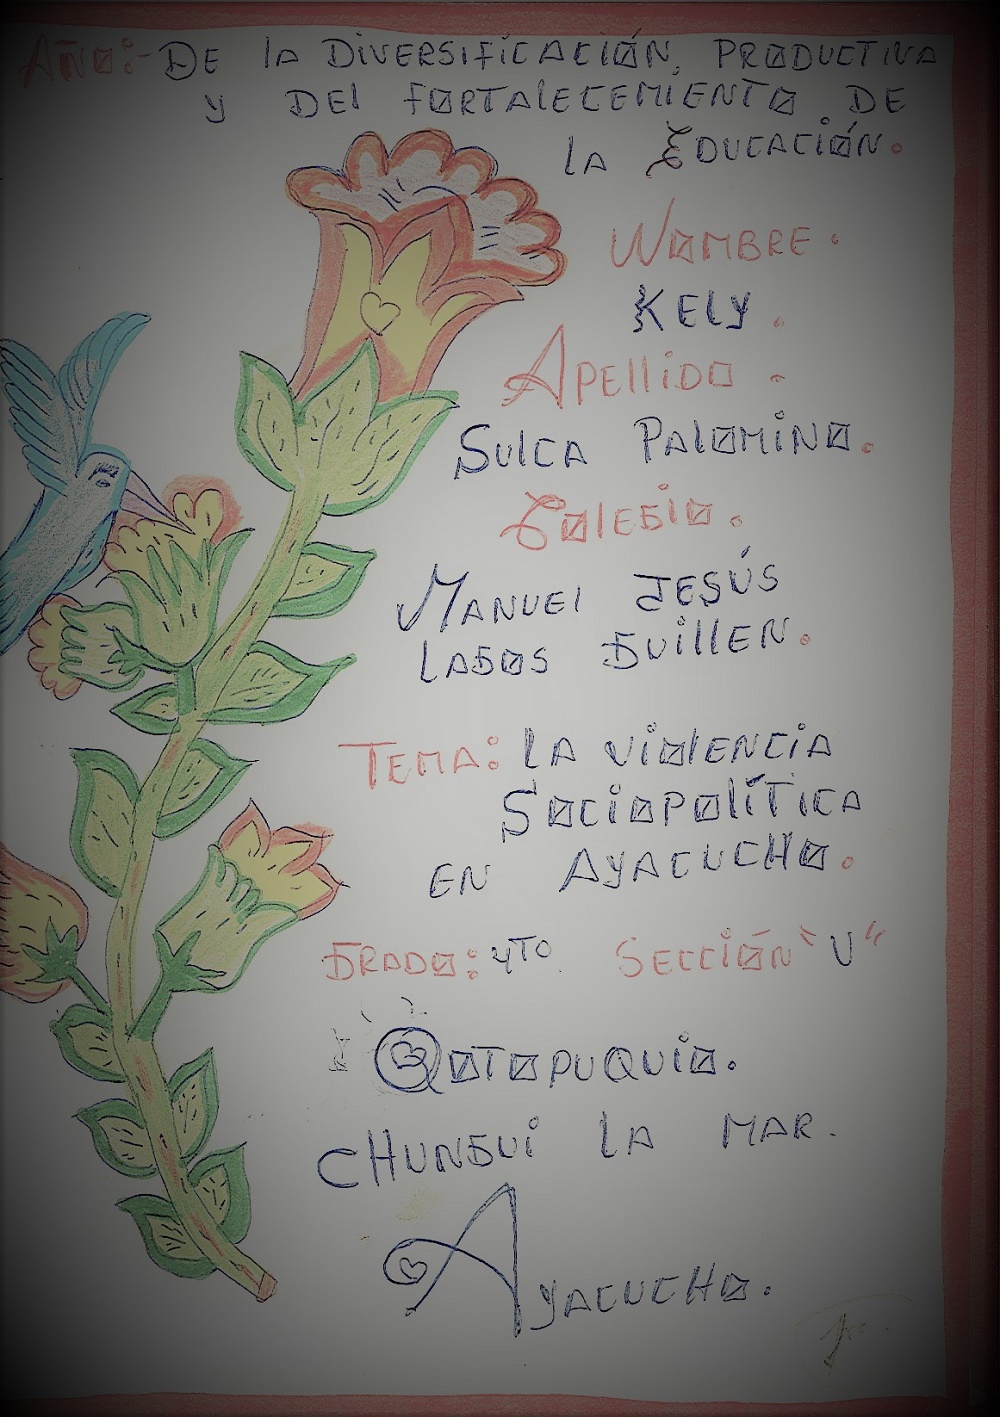 Año:- De la Diversificación, Productiva
y del fortalecemiento de
la Educación.
Nombre.
Kely.
Apellido.
Sulca Palomino.
Colegio.
Manuel Jesús
Lagos Guillen.
Tema: La violencia
Sociopolítica
en Ayacucho.
Grado: 4to. Sección "U"
Qotopuquio.
Chungui La Mar.
Ayacucho.